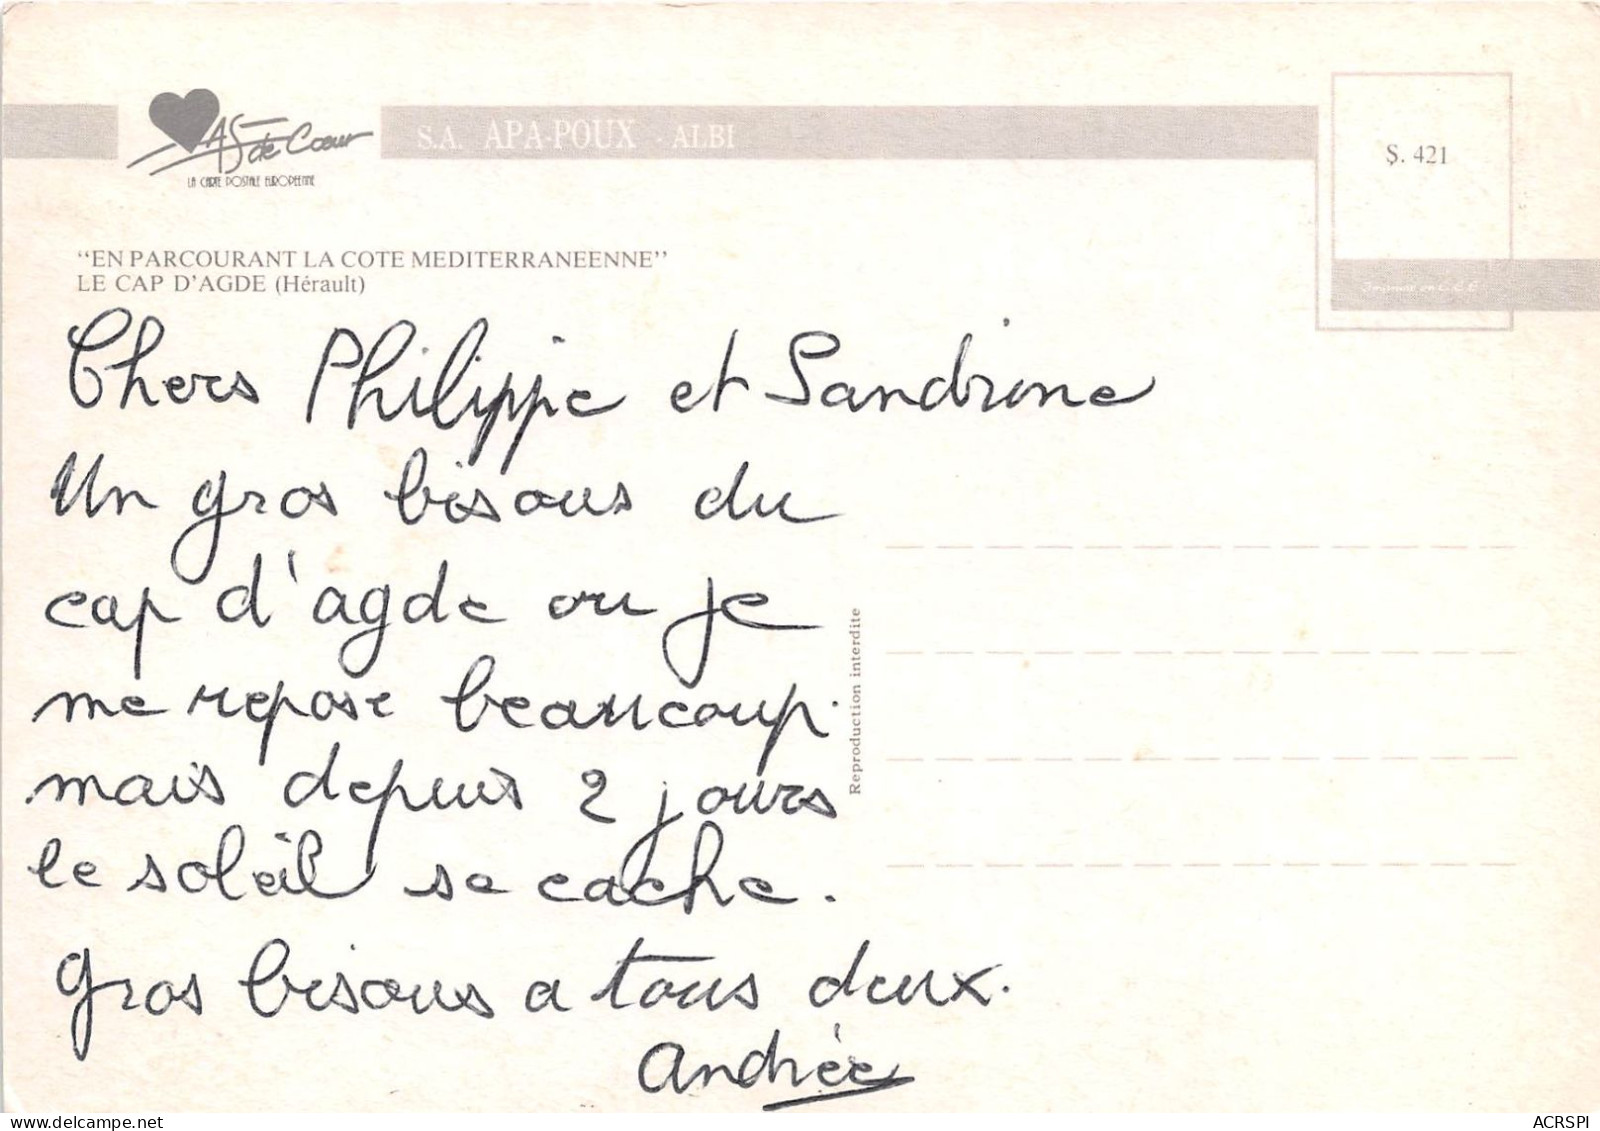 AS de Cœur
LA CARTE POSTALE EUROPÉENNE
S.A. APA-POUX - ALBI
S. 421
Imprimé en C.E.E.
"EN PARCOURANT LA COTE MEDITERRANEENNE"
LE CAP D'AGDE (Hérault)
Chers Philippe et Sandrine
Un gros bisous du
cap d'agde ou je
me repose beaucoup.
mais depuis 2 jours
le soleil se cache.
Gros bisous a tous deux.
Andrée
Reproduction interdite
delcampe.net
ACRSPI